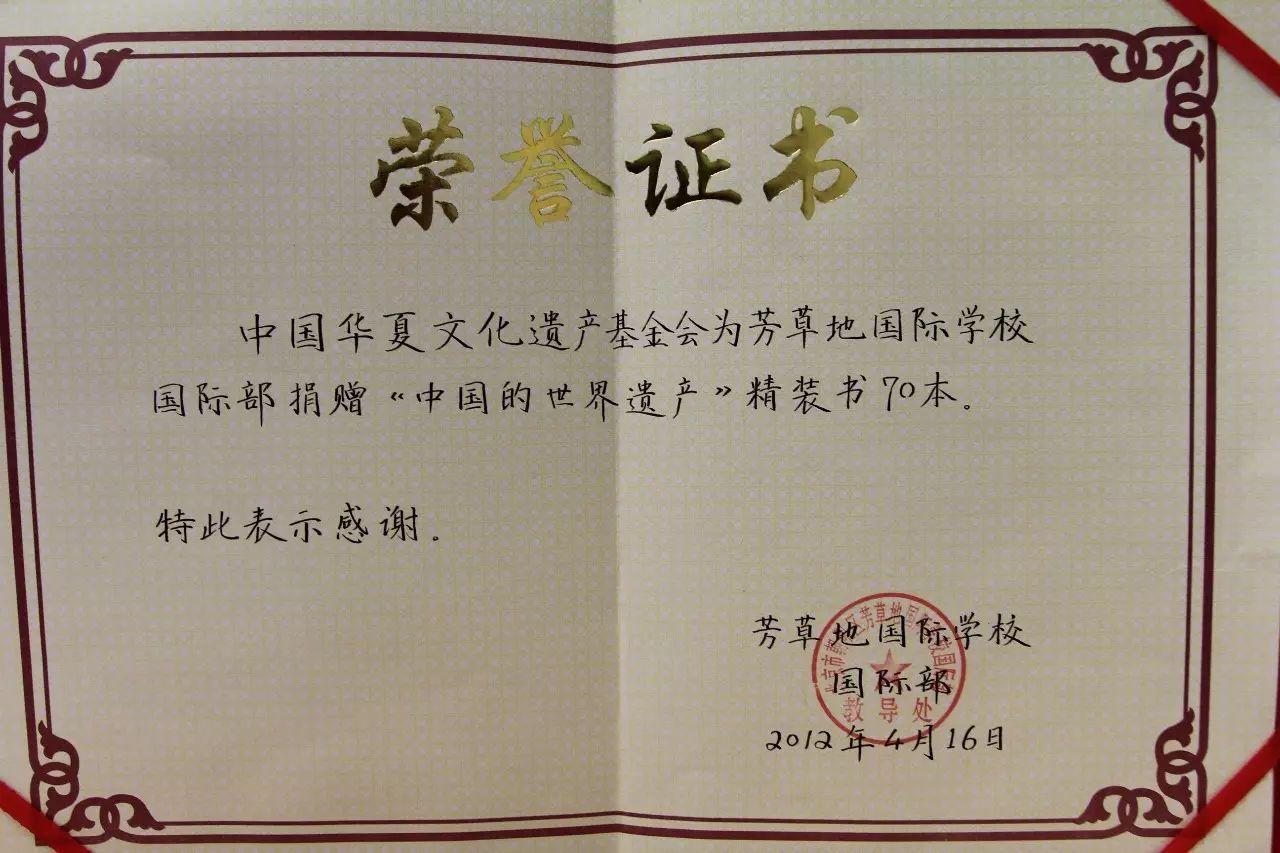 荣誉证书
中国华夏文化遗产基金会为芳草地国际学校
国际部捐赠《中国的世界遗产》精装书70本。
特此表示感谢。
芳草地国际学校
国际部
2012年4月16日
教导处